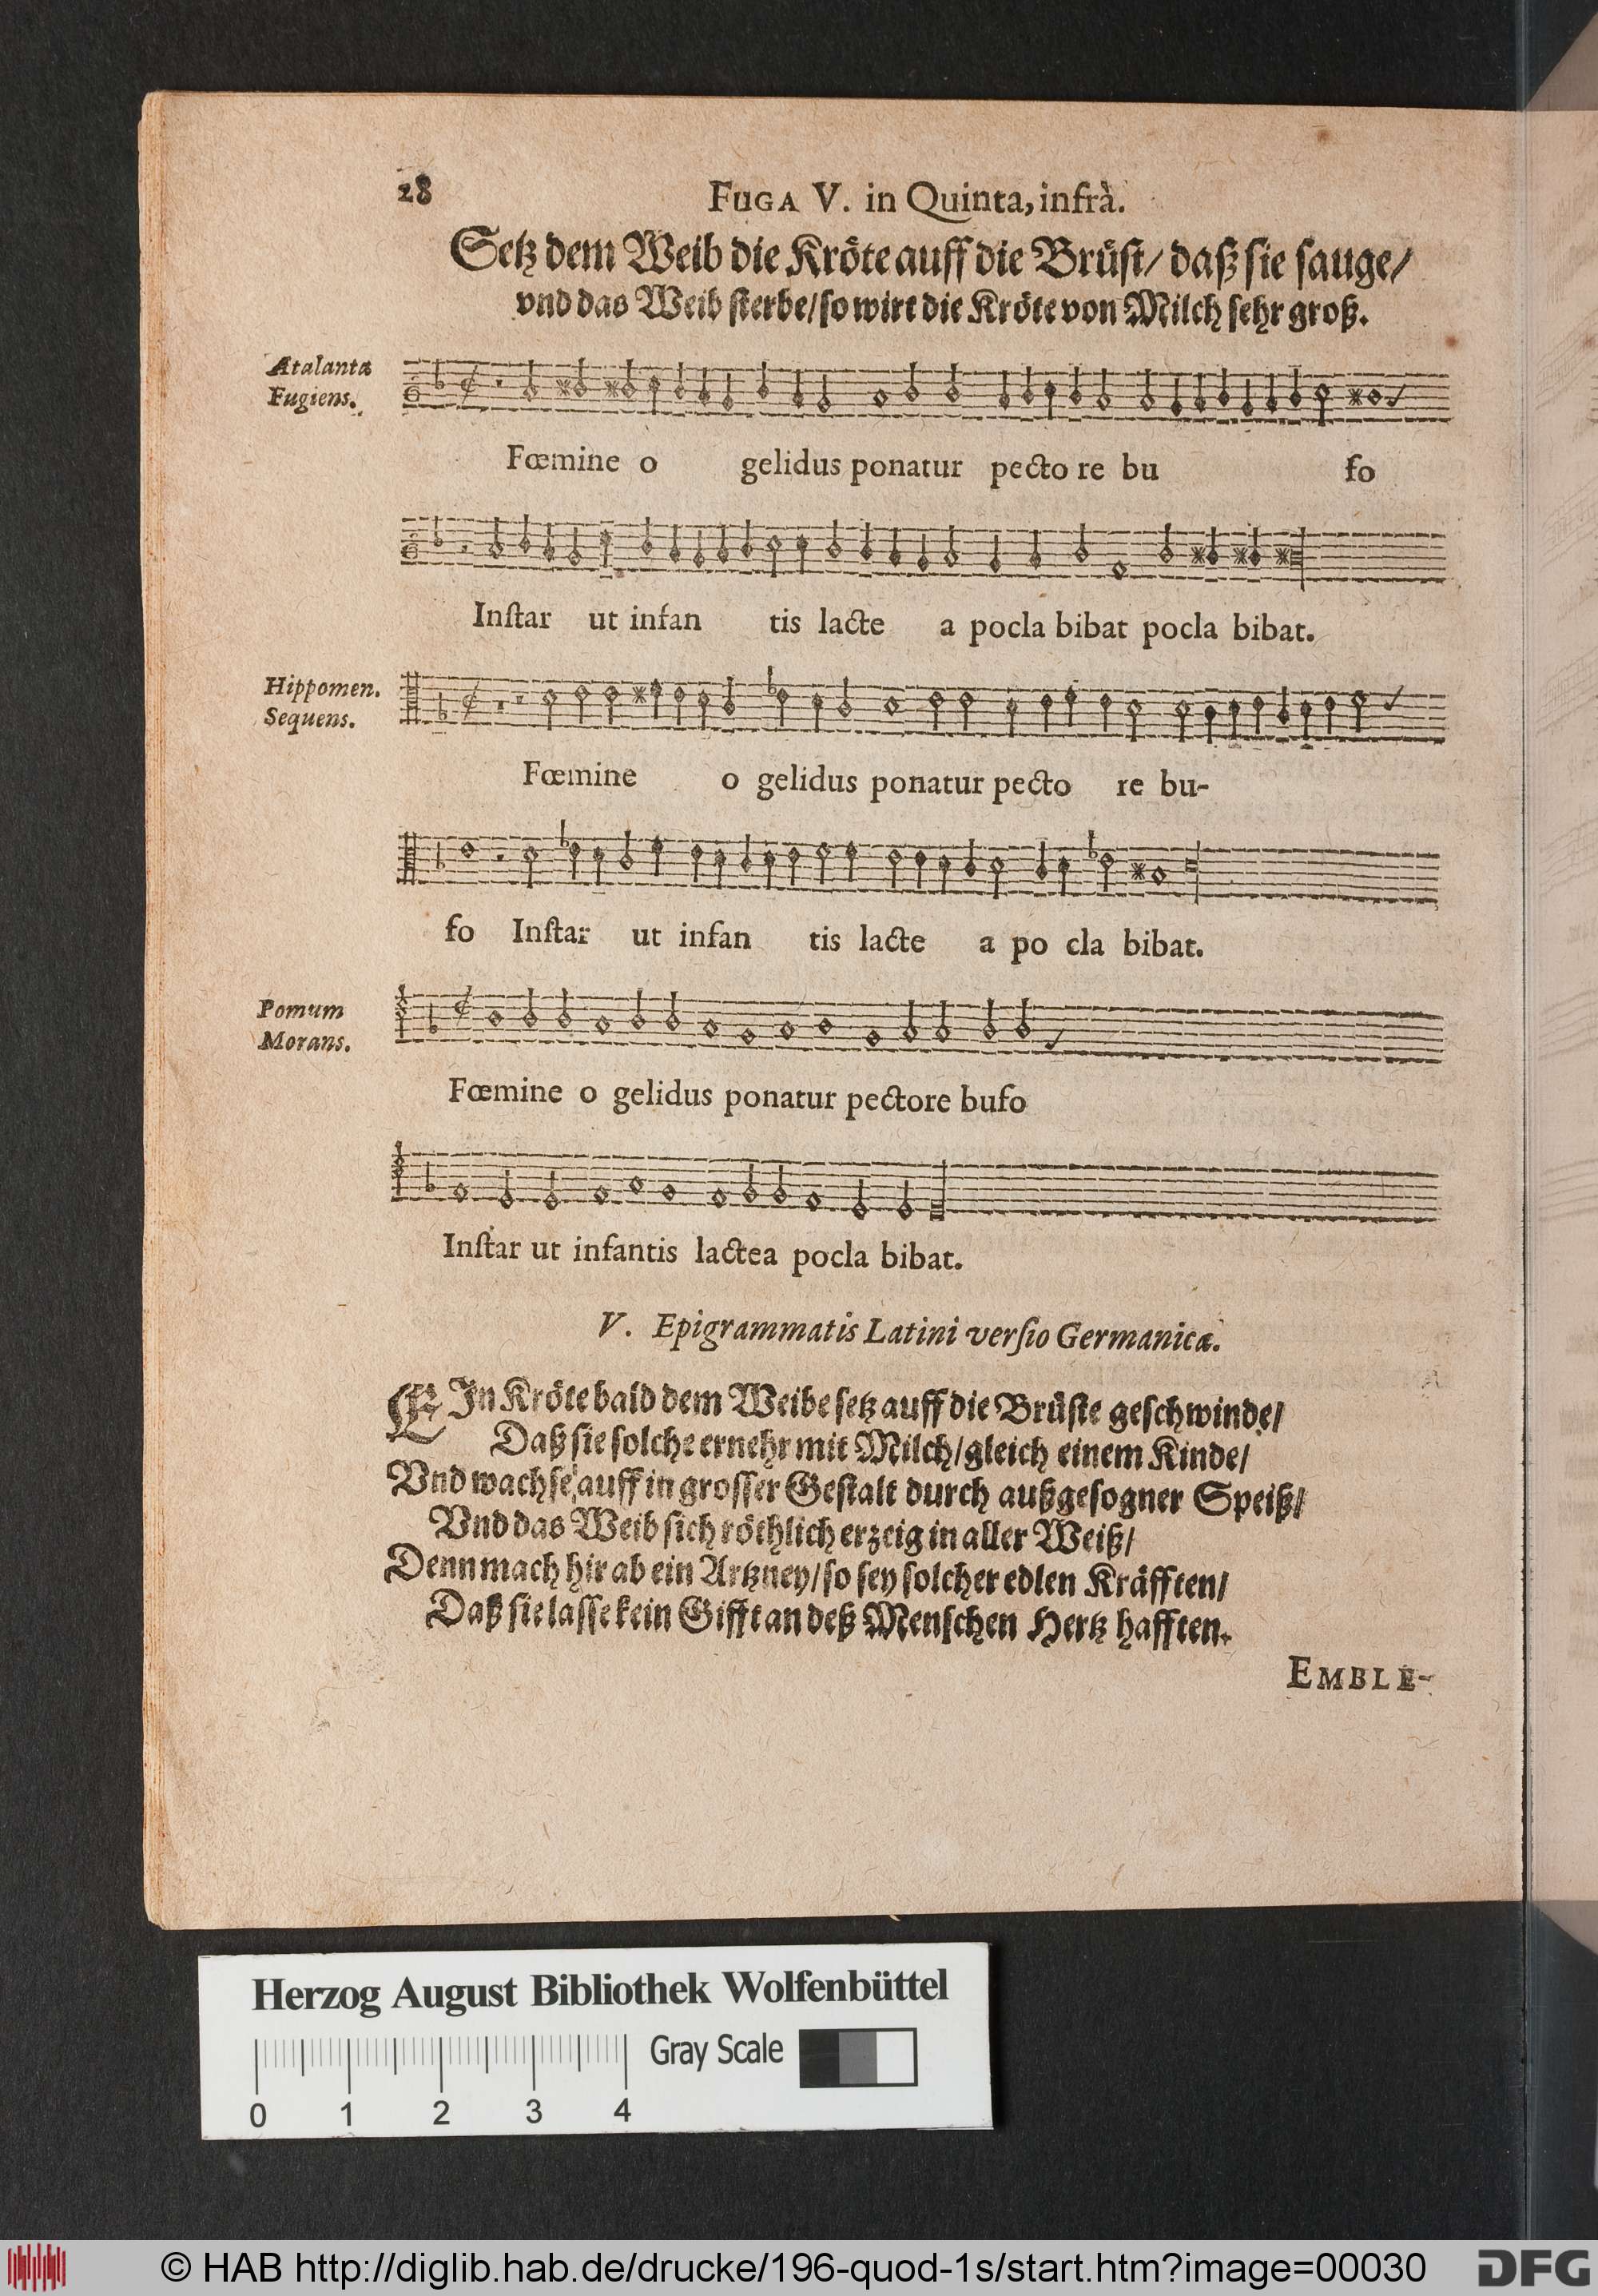 28
FUGA V. in Quinta, infrà.
Setz dem Weib die Kröte auff die Brüst/ daß sie sauge/
vnd das Weib sterbe/ so wirt die Kröte von Milch sehr groß.
Atalanta
Fugiens.
Fœmine o gelidus ponatur pecto re bu fo
Inſtar ut infan tis lacte a pocla bibat pocla bibat.
Hippomen.
Sequens.
Fœmine o gelidus ponatur pecto re bu-
fo Inſtar ut infan tis lacte a po cla bibat.
Pomum
Morans.
Fœmine o gelidus ponatur pectore bufo
Inſtar ut infantis lactea pocla bibat.
V. Epigrammatis Latini verſio Germanica.
EIn Kröte bald dem Weibe setz auff die Brüste geschwinde/
Daß sie solche ernehr mit Milch/ gleich einem Kinde/
Vnd wachse auff in grosser Gestalt durch außgesogner Speiß/
Vnd das Weib sich röthlich erzeig in aller Weiß/
Denn mach hir ab ein Artzney/ so sey solcher edlen Kräfften/
Daß sie lasse kein Gifft an deß Menschen Hertz hafften.
EMBLE-
Herzog August Bibliothek Wolfenbüttel
Gray Scale
0 1 2 3 4
© HAB http://diglib.hab.de/drucke/196-quod-1s/start.htm?image=00030
DFG